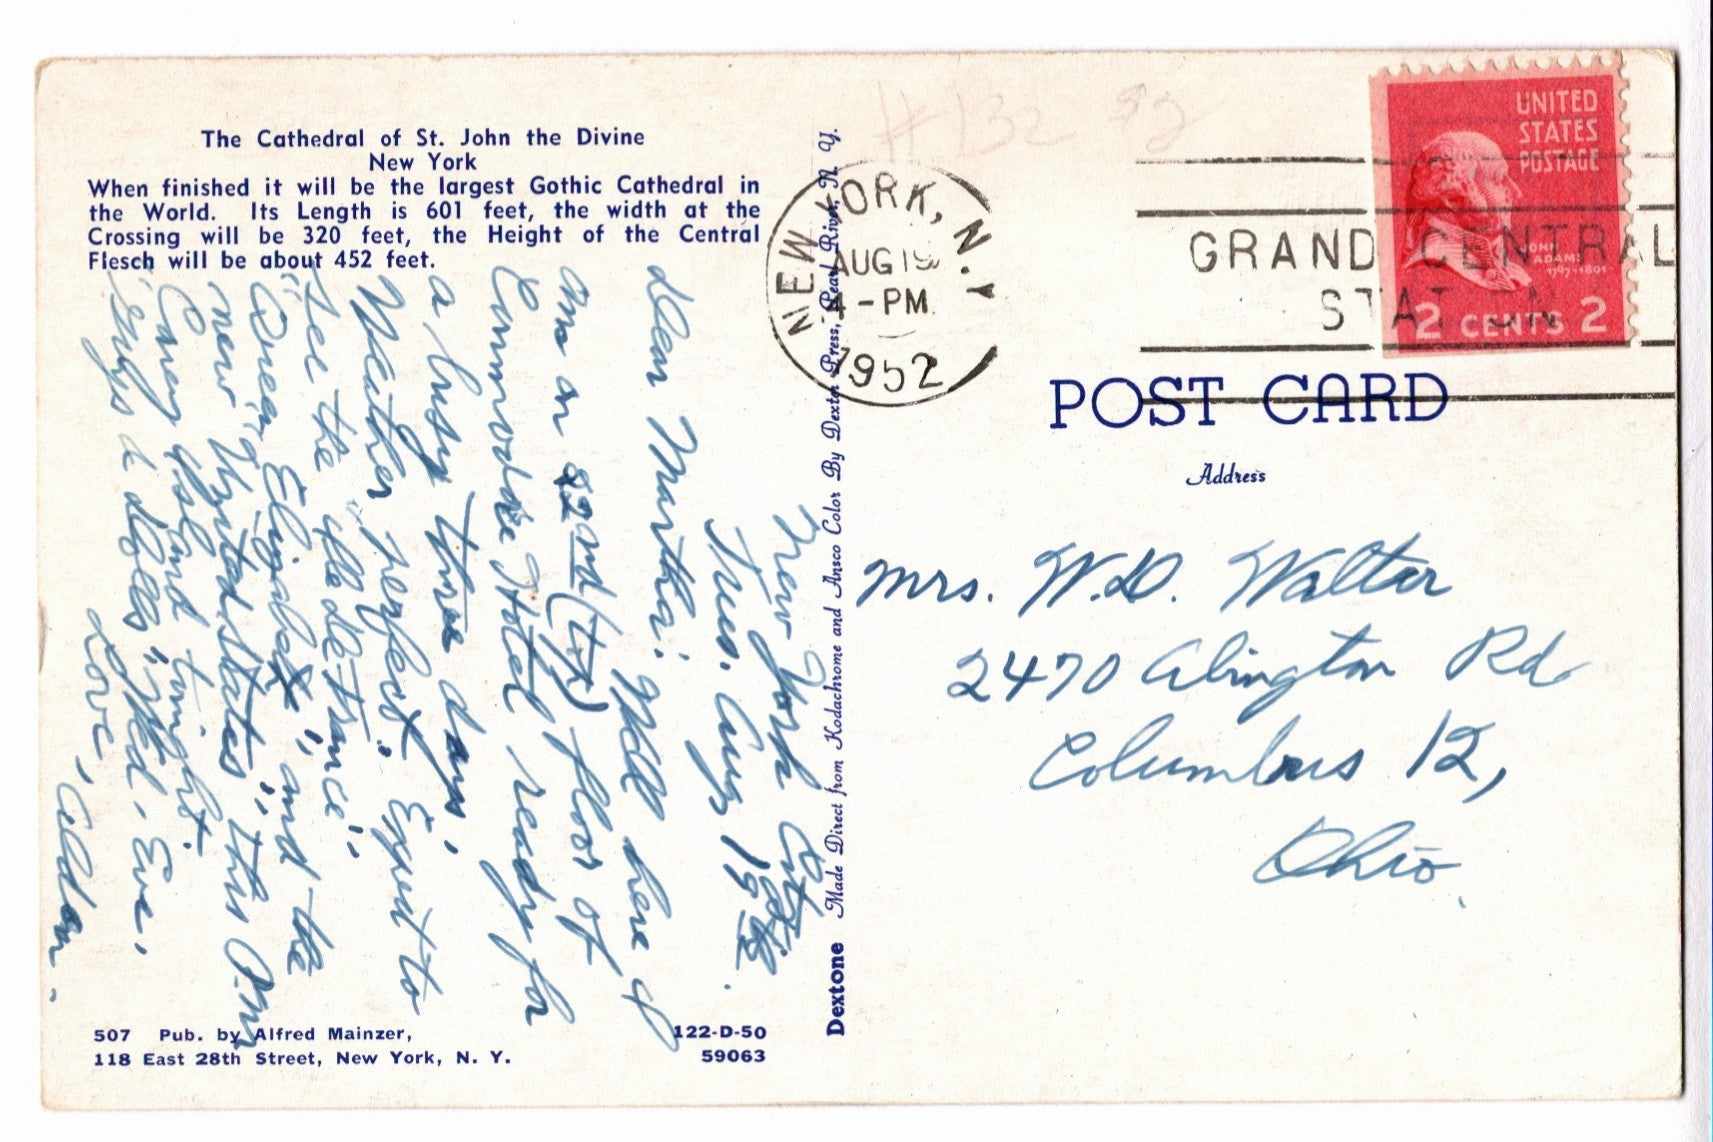 The Cathedral of St. John the Divine
New York
When finished it will be the largest Gothic Cathedral in
the World. Its Length is 601 feet, the width at the
Crossing will be 320 feet, the Height of the Central
Flesch will be about 452 feet.
New York City
Tues. Aug 19 - 52.
Dear Martha: Well here I
am on 22nd (top) floor of
Commodore Hotel ready for
a busy three days,
Weather perfect. Expect to
see the "Ile de France",
"Queen Elizabeth", and the
new "United States", this P.M.
Coney Island tonight.
"Guys & dolls", Wed. Eve.
Love, Alda.
507 Pub. by Alfred Mainzer,
118 East 28th Street, New York, N. Y.
122-D-50
59063
Dextone Made Direct from Kodachrome and Ansco Color By Dexter Press, Pearl River, N. Y.
#132
NEW YORK, N.Y.
AUG 19
4-PM
1952
GRAND CENTRAL
STATION
UNITED
STATES
POSTAGE
JOHN
ADAMS
1797-1801
2 CENTS 2
POST CARD
Address
Mrs. W.D. Walter
2470 Abington Rd
Columbus 12,
Ohio.